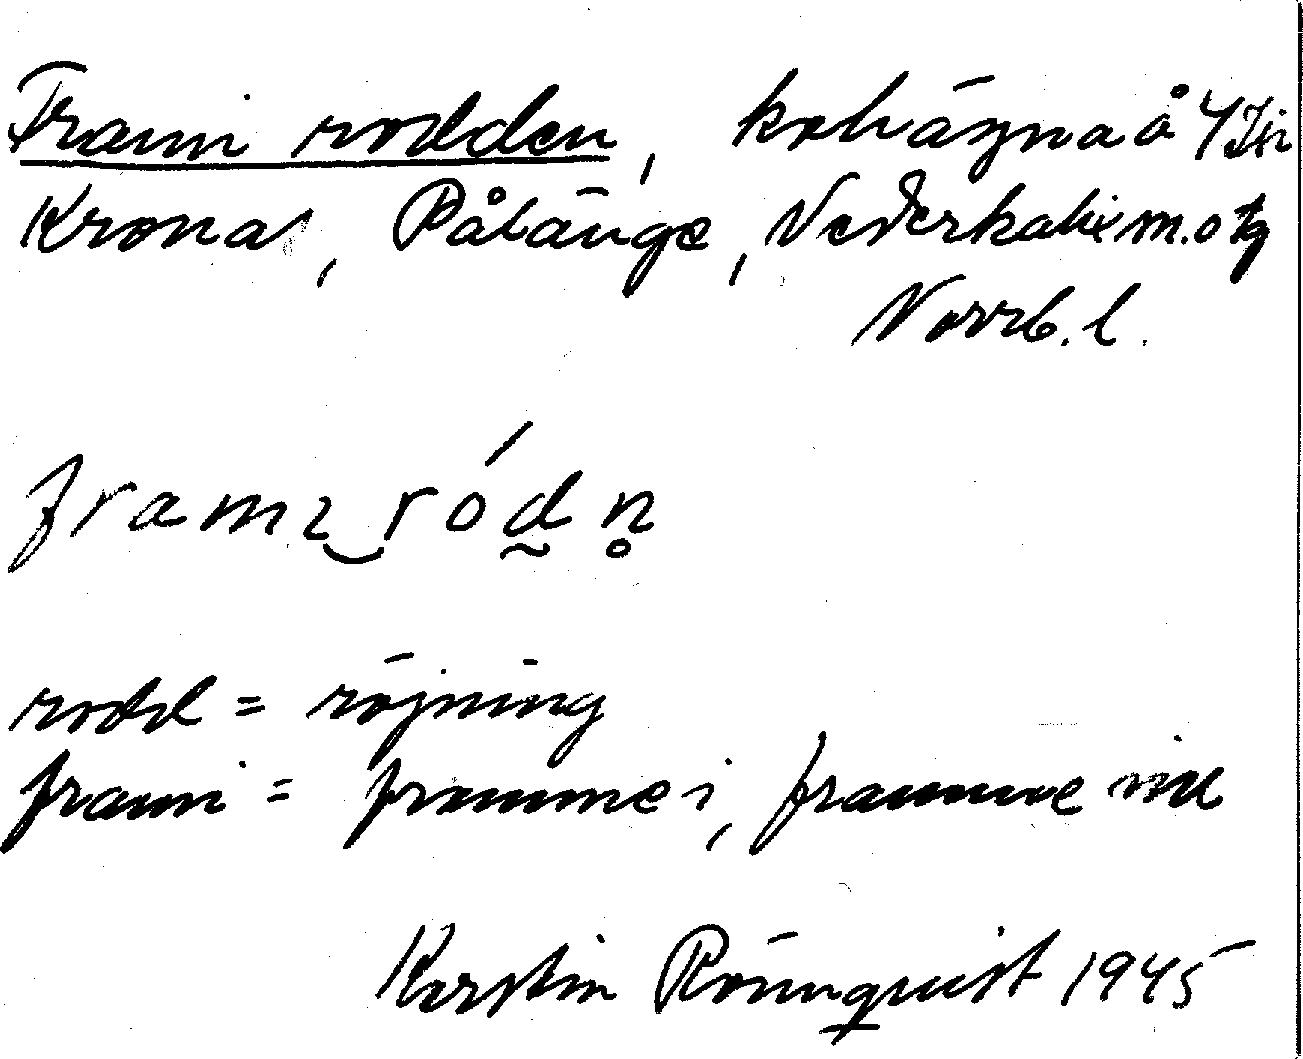 Frami rodden, kohägna å Ytter
Krona, Pålänge, Nederkalix m. o tg
Norrb. l.
frami ródn
rodd = röjning
frami = framme i, framme vid
Kerstin Rönnquist 1945